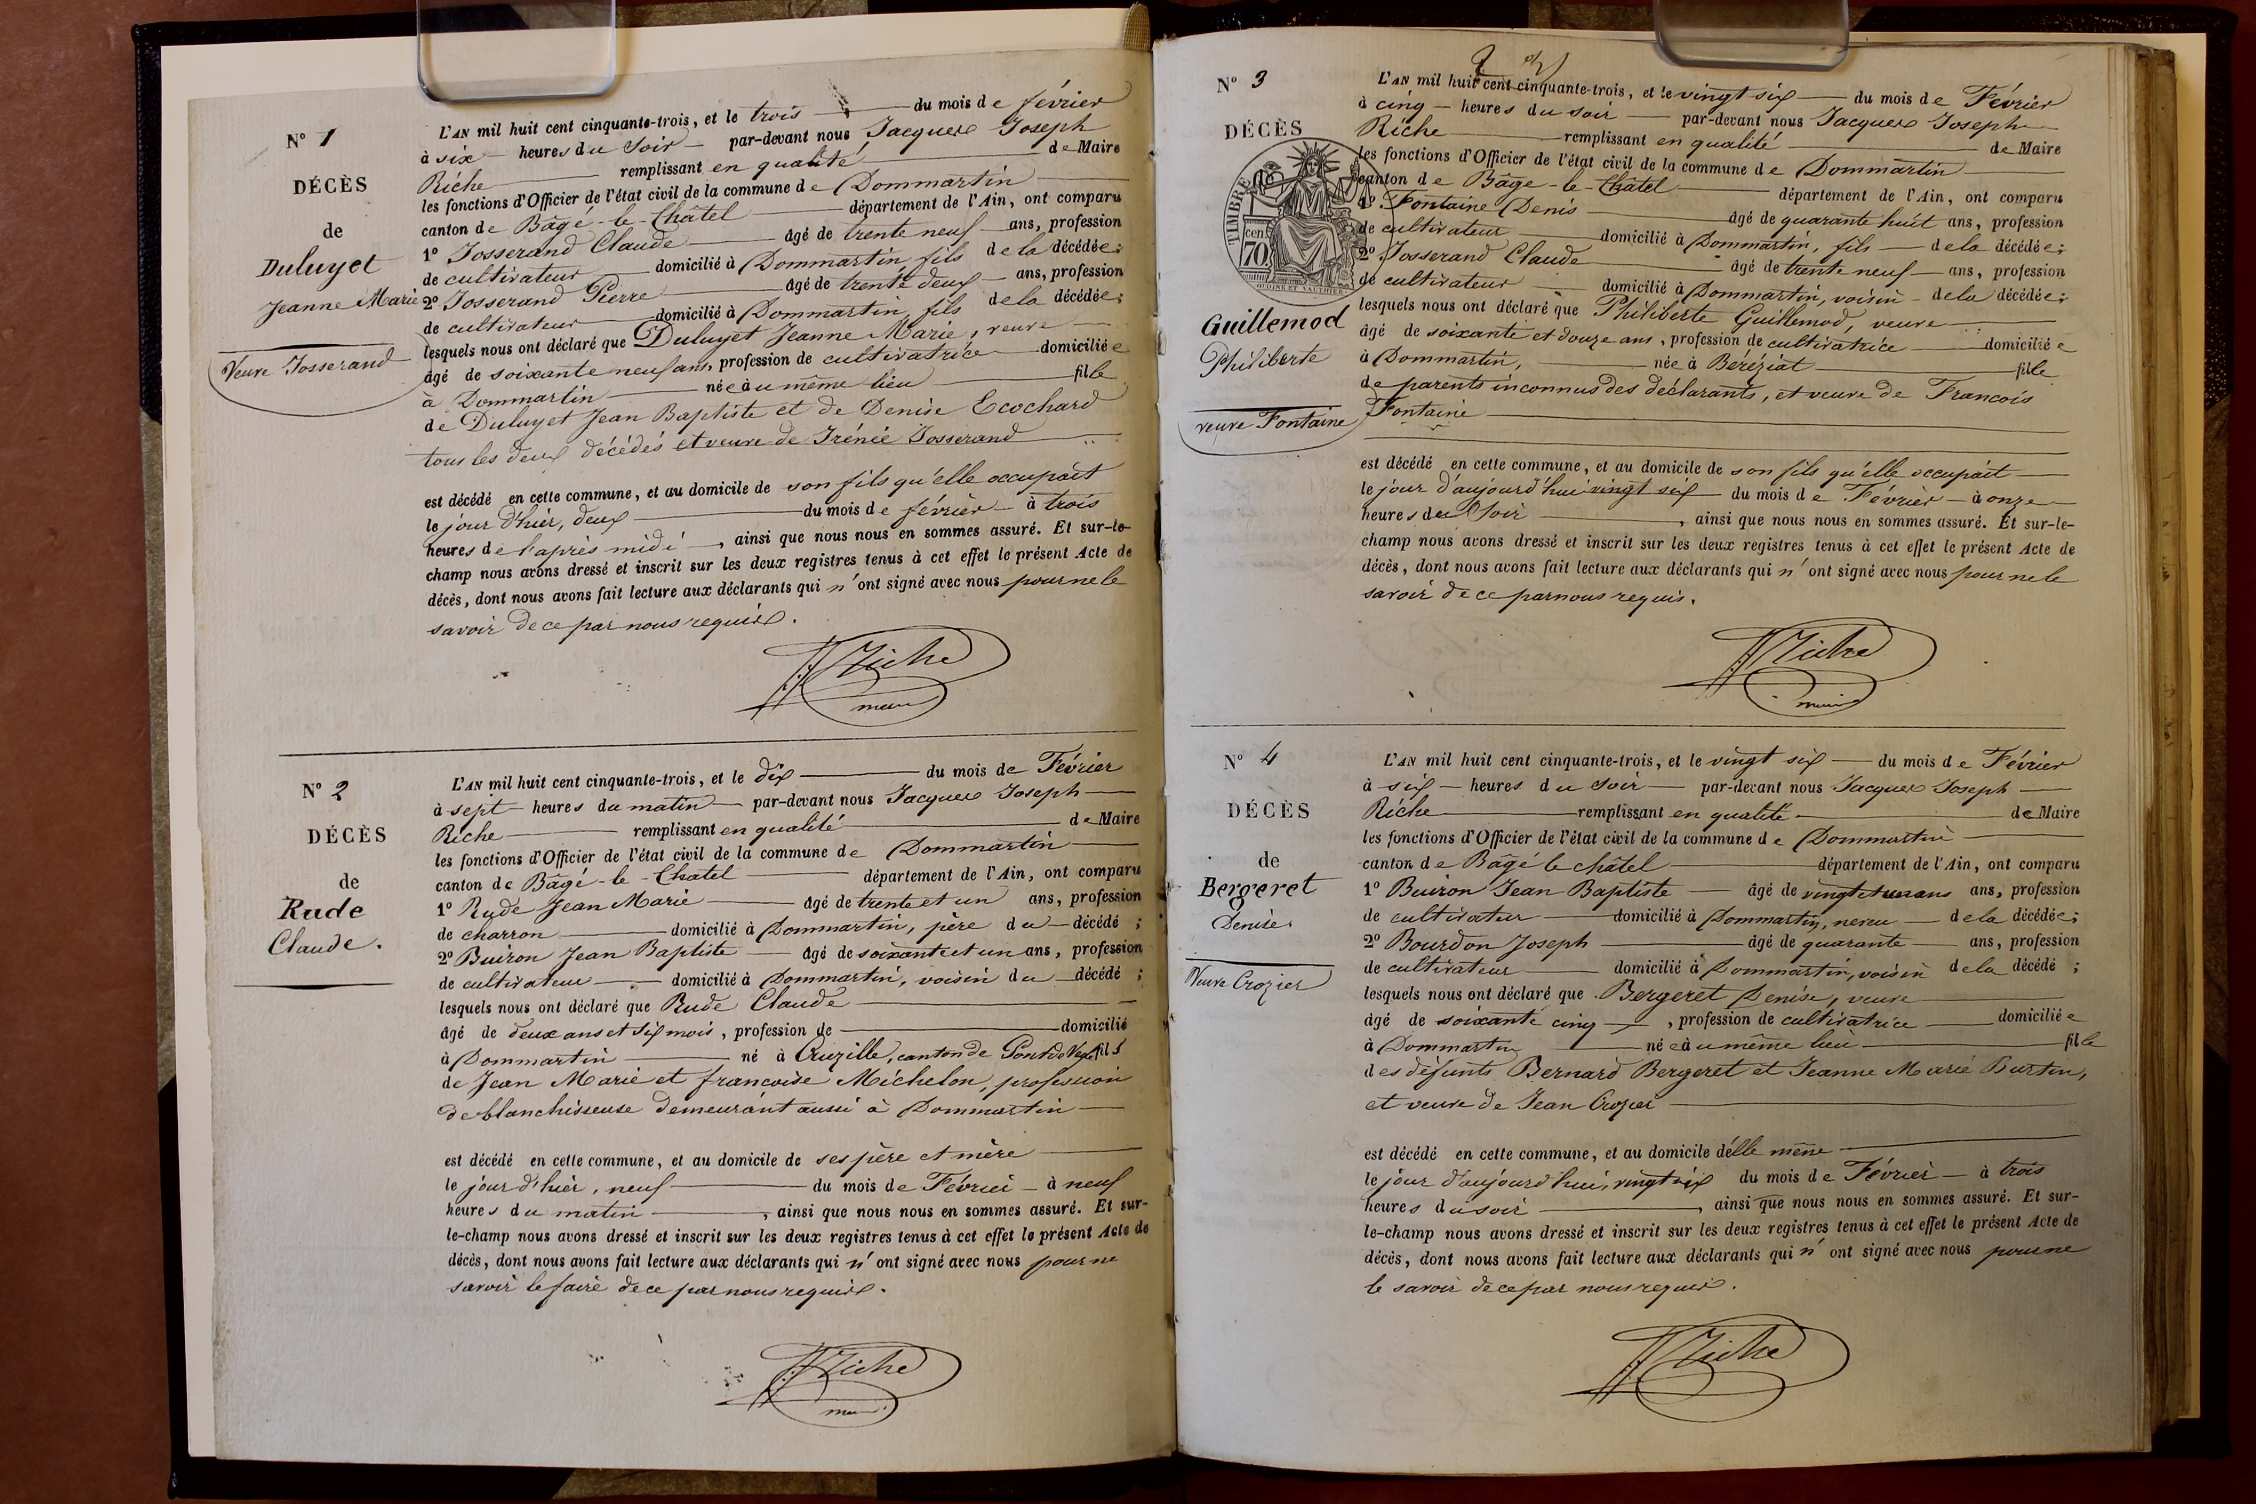 Nº 1
DÉCÈS
de
Duluyet
Jeanne Marie
Veuve Josserand
L'AN mil huit cent cinquante-trois, et le trois du mois de février
à six heures du soir par-devant nous Jacques Joseph
Riche remplissant en qualité de Maire
les fonctions d'Officier de l'état civil de la commune de Dommartin
canton de Bâgé-le-Châtel département de l'Ain, ont comparu
1º Josserand Claude âgé de trente neuf ans, profession
de cultivateur domicilié à Dommartin fils de la décédée;
2º Josserand Pierre âgé de trente deux ans, profession
de cultivateur domicilié à Dommartin, fils de la décédée;
lesquels nous ont déclaré que Duluyet Jeanne Marie, veuve
âgé de soixante neuf ans, profession de cultivatrice domiciliée
à Dommartin née au même lieu fille
de Duluyet Jean Baptiste et de Denise Ecochard
tous les deux décédés et veuve de Irénée Josserand
est décédé en cette commune, et au domicile de son fils qu'elle occupait
le jour d'hier, deux du mois de février à trois
heures de l'après midi, ainsi que nous nous en sommes assuré. Et sur-le-
champ nous avons dressé et inscrit sur les deux registres tenus à cet effet le présent Acte de
décès, dont nous avons fait lecture aux déclarants qui n'ont signé avec nous pour ne le
savoir de ce par nous requis.
Riche
maire
Nº 2
DÉCÈS
de
Rude
Claude.
L'AN mil huit cent cinquante-trois, et le dix du mois de Février
à sept heures du matin par-devant nous Jacques Joseph
Riche remplissant en qualité de Maire
les fonctions d'Officier de l'état civil de la commune de Dommartin
canton de Bâgé-le-Chatel département de l'Ain, ont comparu
1º Rude Jean Marie âgé de trente et un ans, profession
de charron domicilié à Dommartin, père du décédé;
2º Buiron Jean Baptiste âgé de soixante et un ans, profession
de cultivateur domicilié à Dommartin, voisin du décédé;
lesquels nous ont déclaré que Rude Claude
âgé de deux ans et six mois, profession de domicilié
à Dommartin né à Cruzille, canton de Pont de Veyle fils
de Jean Marie et françoise Michelon, profession
de blanchisseuse demeurant aussi à Dommartin
est décédé en cette commune, et au domicile de ses père et mère
le jour d'hier, neuf du mois de Février à neuf
heures du matin, ainsi que nous nous en sommes assuré. Et sur-
le-champ nous avons dressé et inscrit sur les deux registres tenus à cet effet le présent Acte de
décès, dont nous avons fait lecture aux déclarants qui n'ont signé avec nous pour ne
savoir le faire de ce par nous requis.
Riche
maire
2
Nº 3
DÉCÈS
TIMBRE
70 cen
OUDINE ET VAUTHIER
Guillemod
Philiberte
veuve Fontaine
L'AN mil huit cent cinquante-trois, et le vingt six du mois de Février
à cinq heures du soir par-devant nous Jacques Joseph
Riche remplissant en qualité de Maire
les fonctions d'Officier de l'état civil de la commune de Dommartin
canton de Bâgé-le-Châtel département de l'Ain, ont comparu
1º Fontaine Denis âgé de quarante huit ans, profession
de cultivateur domicilié à Dommartin, fils de la décédée;
2º Josserand Claude âgé de trente neuf ans, profession
de cultivateur domicilié à Dommartin, voisin de la décédée;
lesquels nous ont déclaré que Philiberte Guillemod, veuve
âgé de soixante et douze ans, profession de cultivatrice domiciliée
à Dommartin, née à Béréziat fille
de parents inconnus des déclarants, et veuve de François
Fontaine
est décédé en cette commune, et au domicile de son fils qu'elle occupait
le jour d'aujourd'hui vingt six du mois de Février à onze
heures du soir, ainsi que nous nous en sommes assuré. Et sur-le-
champ nous avons dressé et inscrit sur les deux registres tenus à cet effet le présent Acte de
décès, dont nous avons fait lecture aux déclarants qui n'ont signé avec nous pour ne le
savoir de ce par nous requis.
Riche
maire
Nº 4
DÉCÈS
de
Bergeret
Denise
Veuve Crozier
L'AN mil huit cent cinquante-trois, et le vingt six du mois de Février
à six heures du soir par-devant nous Jacques Joseph
Riche remplissant en qualité de Maire
les fonctions d'Officier de l'état civil de la commune de Dommartin
canton de Bâgé le châtel département de l'Ain, ont comparu
1º Buiron Jean Baptiste âgé de vingt et un ans ans, profession
de cultivateur domicilié à Dommartin, neveu de la décédée;
2º Bourdon Joseph âgé de quarante ans, profession
de cultivateur domicilié à Dommartin, voisin de la décédé;
lesquels nous ont déclaré que Bergeret Denise, veuve
âgé de soixante cinq, profession de cultivatrice domiciliée
à Dommartin née au même lieu fille
des défunts Bernard Bergeret et Jeanne Marie Burtin,
et veuve de Jean Crozier
est décédé en cette commune, et au domicile d'elle même
le jour d'aujourd'hui, vingt six du mois de Février à trois
heures du soir, ainsi que nous nous en sommes assuré. Et sur-
le-champ nous avons dressé et inscrit sur les deux registres tenus à cet effet le présent Acte de
décès, dont nous avons fait lecture aux déclarants qui n'ont signé avec nous pour ne
le savoir de ce par nous requis.
Riche